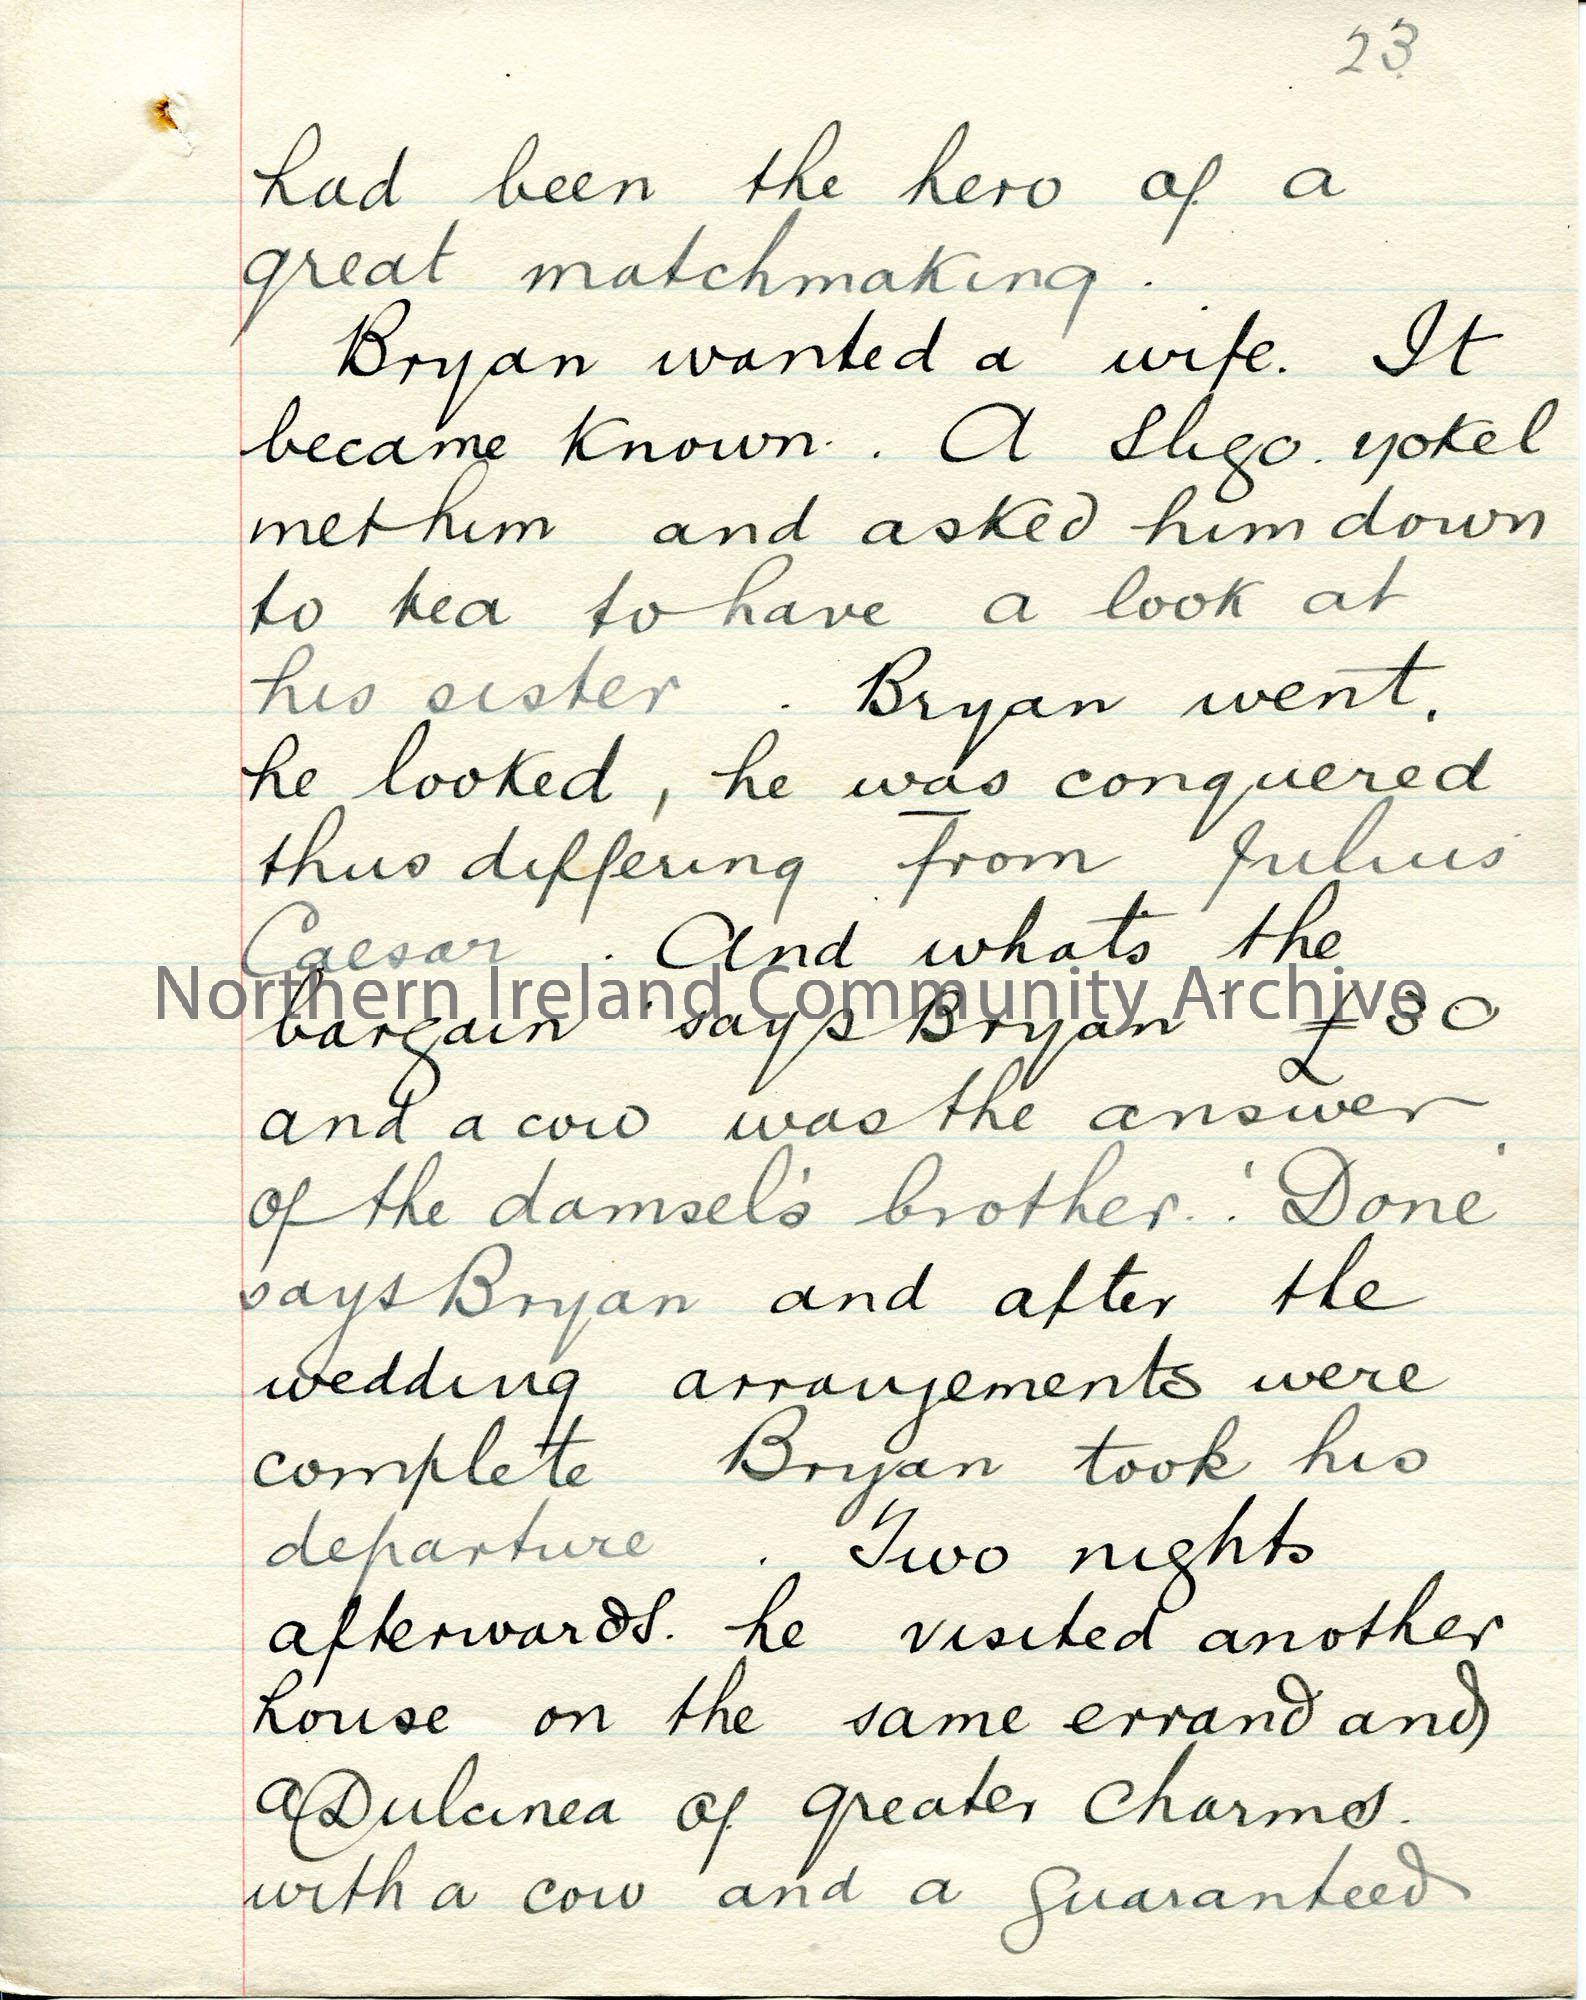 23
had been the hero of a
great matchmaking.
Bryan wanted a wife. It
became known. A Sligo yokel
met him and asked him down
to tea to have a look at
his sister. Bryan went,
he looked, he was conquered
thus differing from Julius
Caesar. And whats the
bargain' says Bryan' £30
Northern Ireland Community Archive
and a cow was the answer
of the damsel's brother. 'Done'
says Bryan and after the
wedding arrangements were
complete Bryan took his
departure. Two nights
afterwards. he visited another
house on the same errand and
a Dulcinea of greater charms.
with a cow and a guaranteed